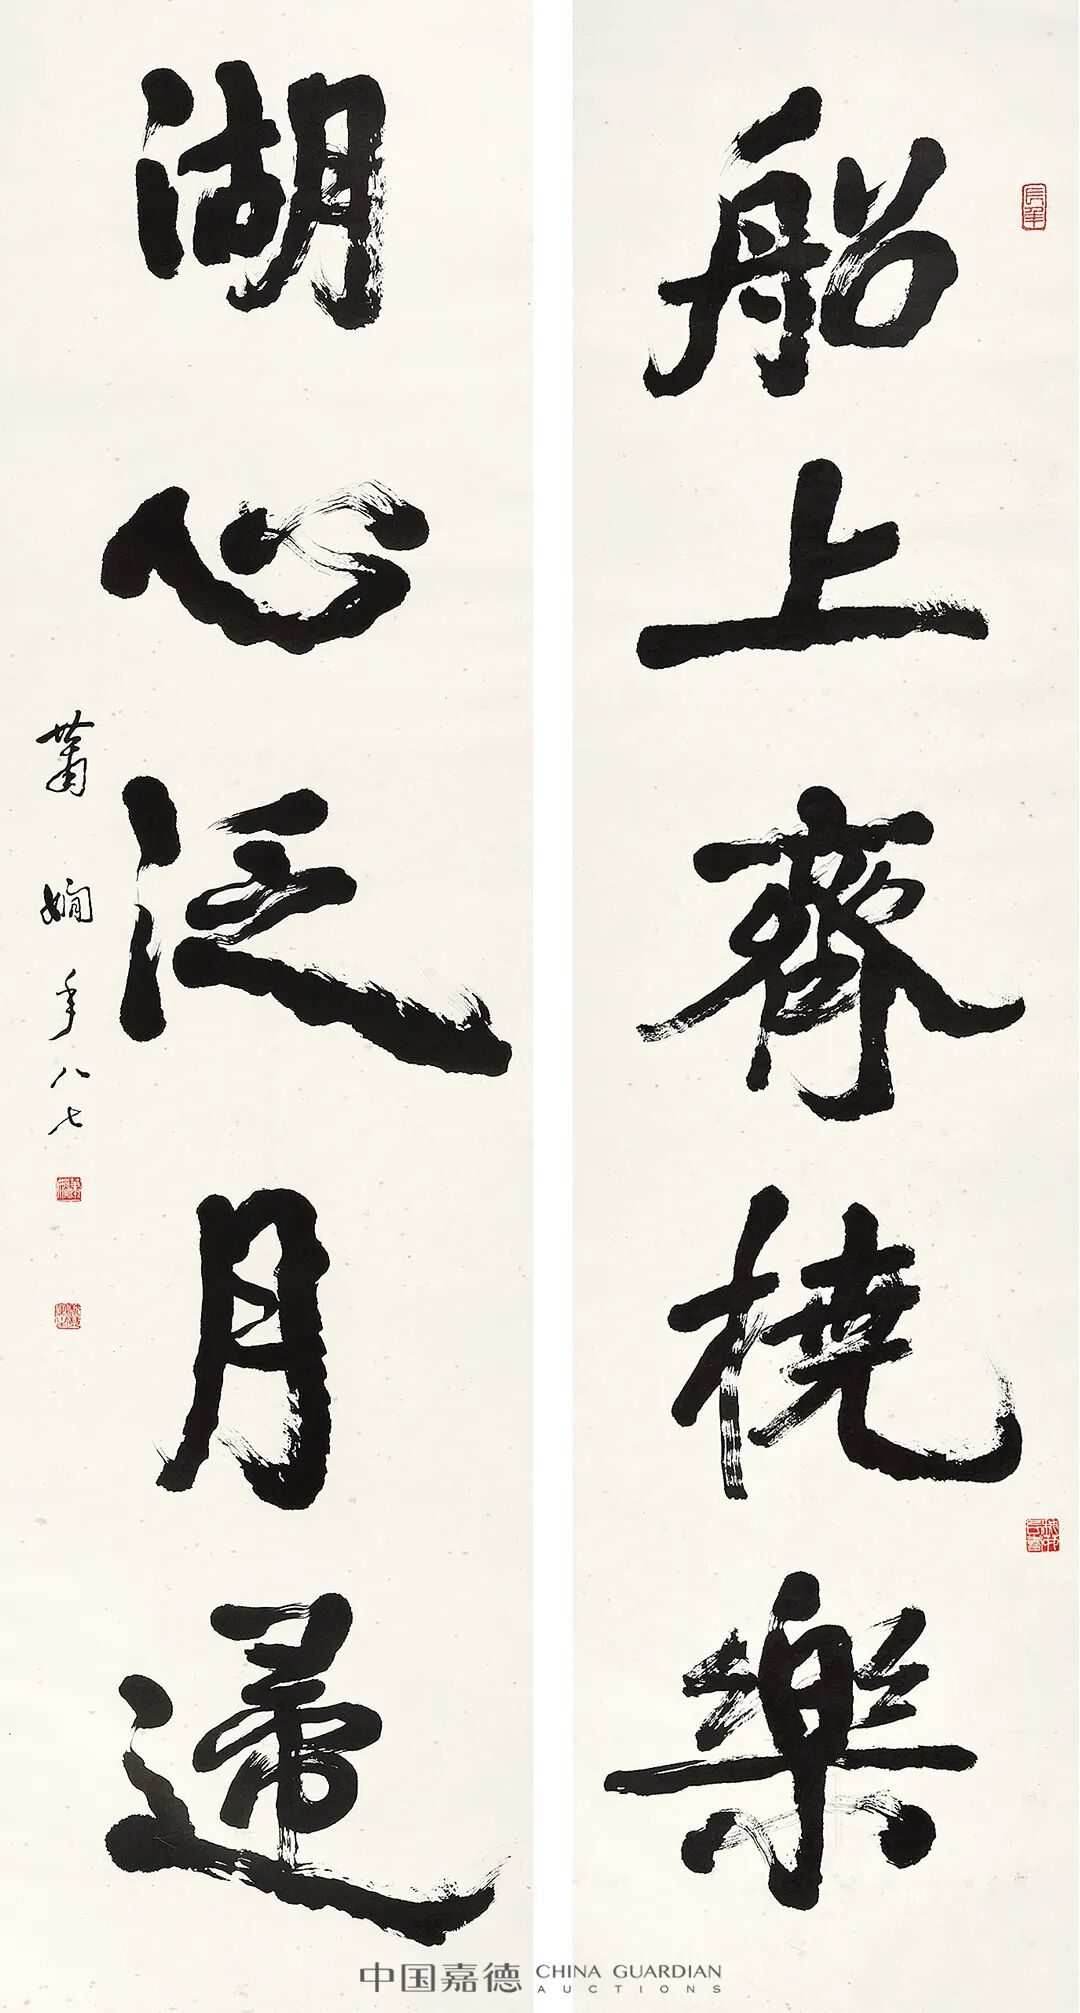 船上齊橈樂
湖心泛月歸
蕭嫻年八七
中国嘉德 CHINA GUARDIAN AUCTIONS